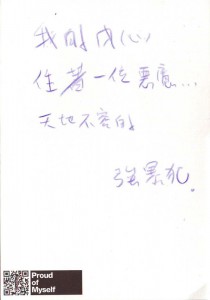 我的內心
住著一位惡魔...
天地不容的
強暴犯.
Proud
of
Myself